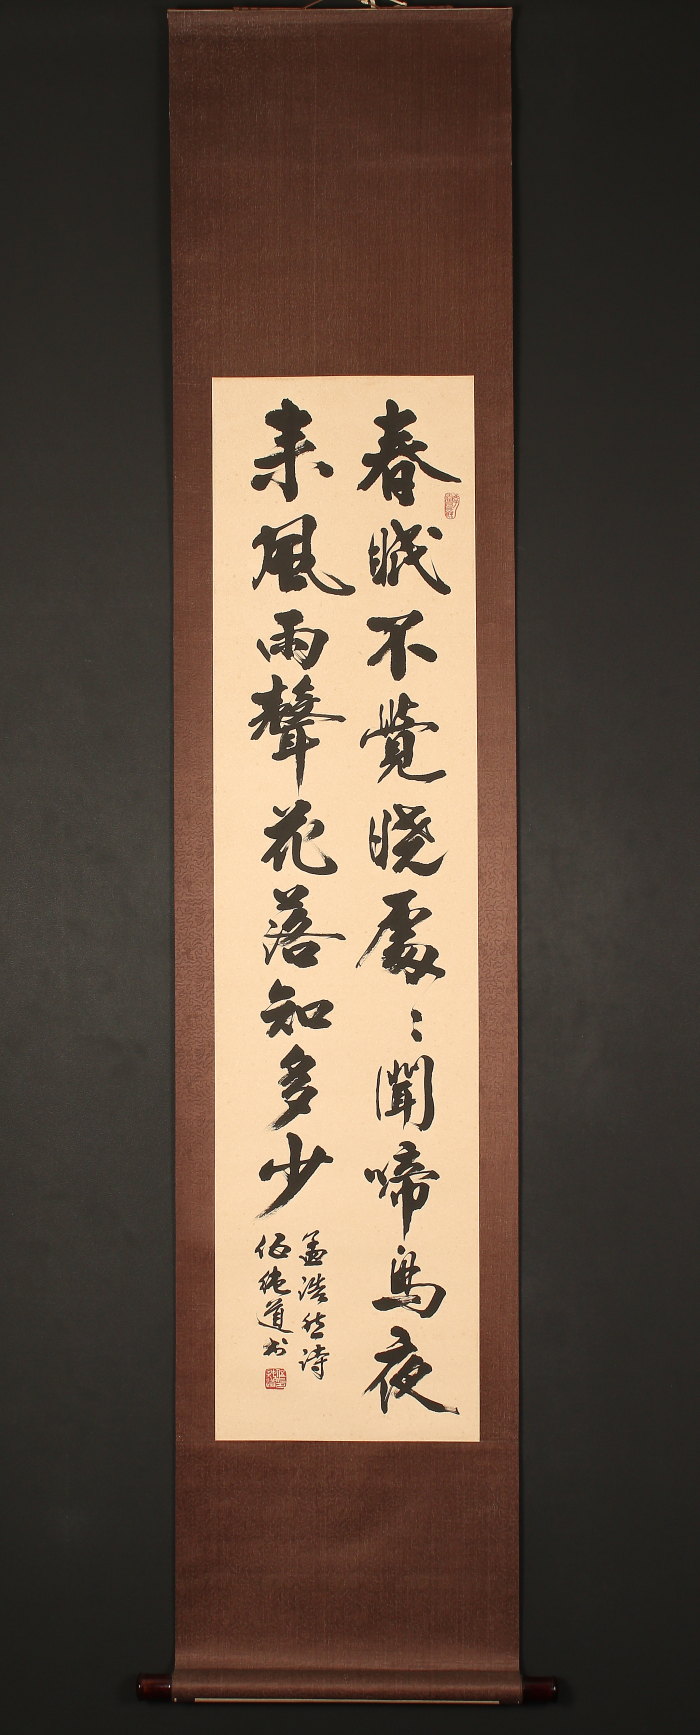 春眠不覺晓處〻聞啼鳥夜
来風雨聲花落知多少
孟浩然詩
伍純道书